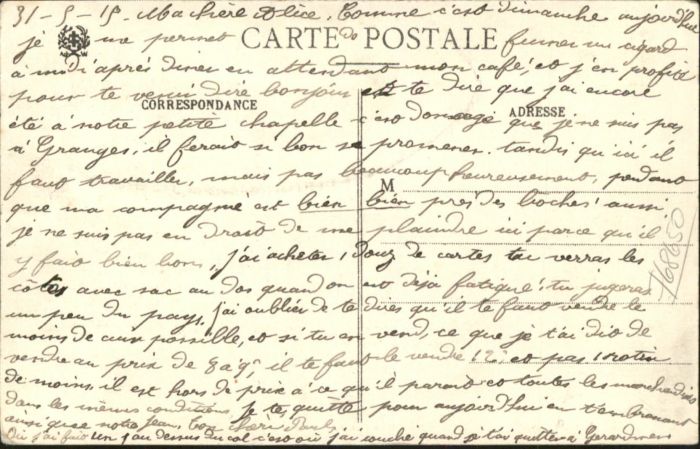 31-5-15. Ma chère Alice, Comme c'est dimanche aujourd'hui
je me permet de fumer un cigard
CARTE POSTALE
à midi après diner en attendant mon café, et j'en profite
pour te venir dire bonjour et te dire que j'ai encore
CORRESPONDANCE
ADRESSE
été à notre petite chapelle c'est domage que je ne suis pas
à Granges, il ferait si bon se promener tandis qu'ici il
faut travailler, mais pas beaucoup heureusement, pendant
M
que ma compagnie est bien bien près des boches aussi
je ne suis pas en droit de me plaindre ici parce qu'il
y fait bien bon, j'ai acheter 1 douz de cartes tu verras les
côtes avec sac au dos quand on est déjà fatigué, tu jugeras
un peu du pays, j'ai oublier de te dire qu'il te faut vendre le
moins de vin possible, et si tu en vend, ce que je t'ai dit de
vendre au prix de 8 à 9f, il te faut le vendre 12f et pas 1 rotin
de moins, il est hors de prix à ce qu'il parait et toutes les marchandises
dans les mêmes conditions, je te quitte pour aujourd'hui en t'embrassant
ainsi que notre Jean, ton chéri
Où j'ai fait un 1 au dessus du col c'est où j'ai couché quand je t'ai quitter à Gerardmer
168650